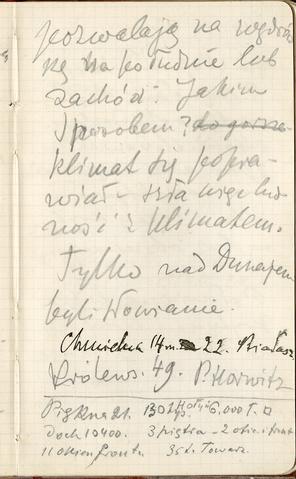 pozwalają na wędrów
kę na południe lub
zachód. Jakim
sposobem?
klimat się popra-
wiał - szła wraz lud-
ność z klimatem.
Tylko nad Dunajem
byli Słowianie.
Chmielna 14 m 22.
Królews. 49. P. Horwitz
Piękna 21. 130 6.000 T.
Doch 10400. 3 piętra - 2 oficyny front
11 okien frontu 35 t. Towarz.